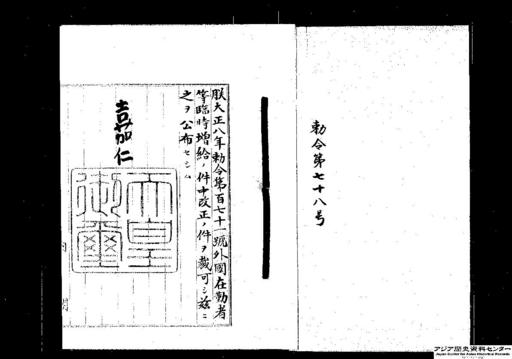 勅令第七十八号
朕大正八年勅令第百七十一號外國在勤者
等臨時増給ノ件中改正ノ件ヲ裁可シ茲ニ
之ヲ公布セシム
嘉仁
天皇
御璽
内閣
アジア歴史資料センター
Japan Center for Asian Historical Records